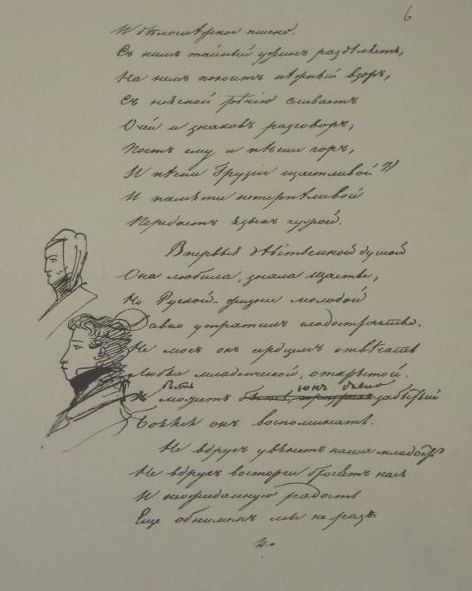 6
И бѣлоснѣжное пшено.
Съ нимъ тайный ужинъ раздѣляетъ,
На немъ покоитъ нѣжный взоръ,
Съ неясной рѣчію сливаетъ
Очей и знаковъ разговоръ,
Поетъ ему и пѣсни горъ,
И пѣсни Грузіи щастливой
И памяти нетерпѣливой
Передаетъ языкъ чужой.
Впервые дѣвственной душой
Она любила, знала щастье,
Но Руской жизни молодой
Давно утратилъ сладострастье.
Не могъ онъ сердцемъ отвѣчать
Любви младенческой, открытой.
Быть можетъ сонъ любви забытой
Боялся онъ воспоминать.
Не вдругъ увянетъ наша младость
Не вдругъ восторги бросятъ насъ
И неожиданную радость
Еще обнимемъ мы не разъ